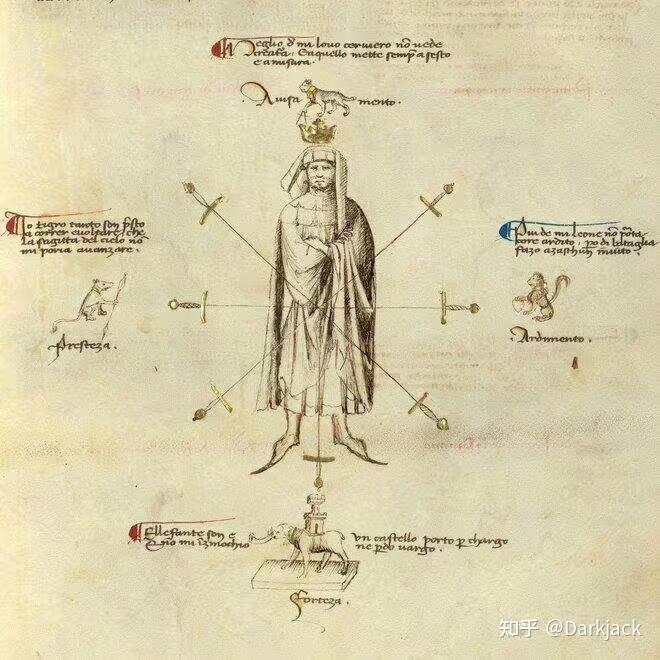 Meglio d mi lovo cerviero nō vede
creatura. Eaquello mette semp̄ asesto
e amisura.
Avisa mento.
Io tigro tanto son p̄sto
a correr e voltare che
la sagitta del cielo nō
mi poria avanzare.
Presteza.
Piu de mi leone nō porta
core ardito, po di bataglia
fazo azaschun invito.
Ardimento.
Ellefante son e
un castello porto p chargo
E nō mi inzenochio
ne pdo vargo.
Forteza.
知乎 @Darkjack